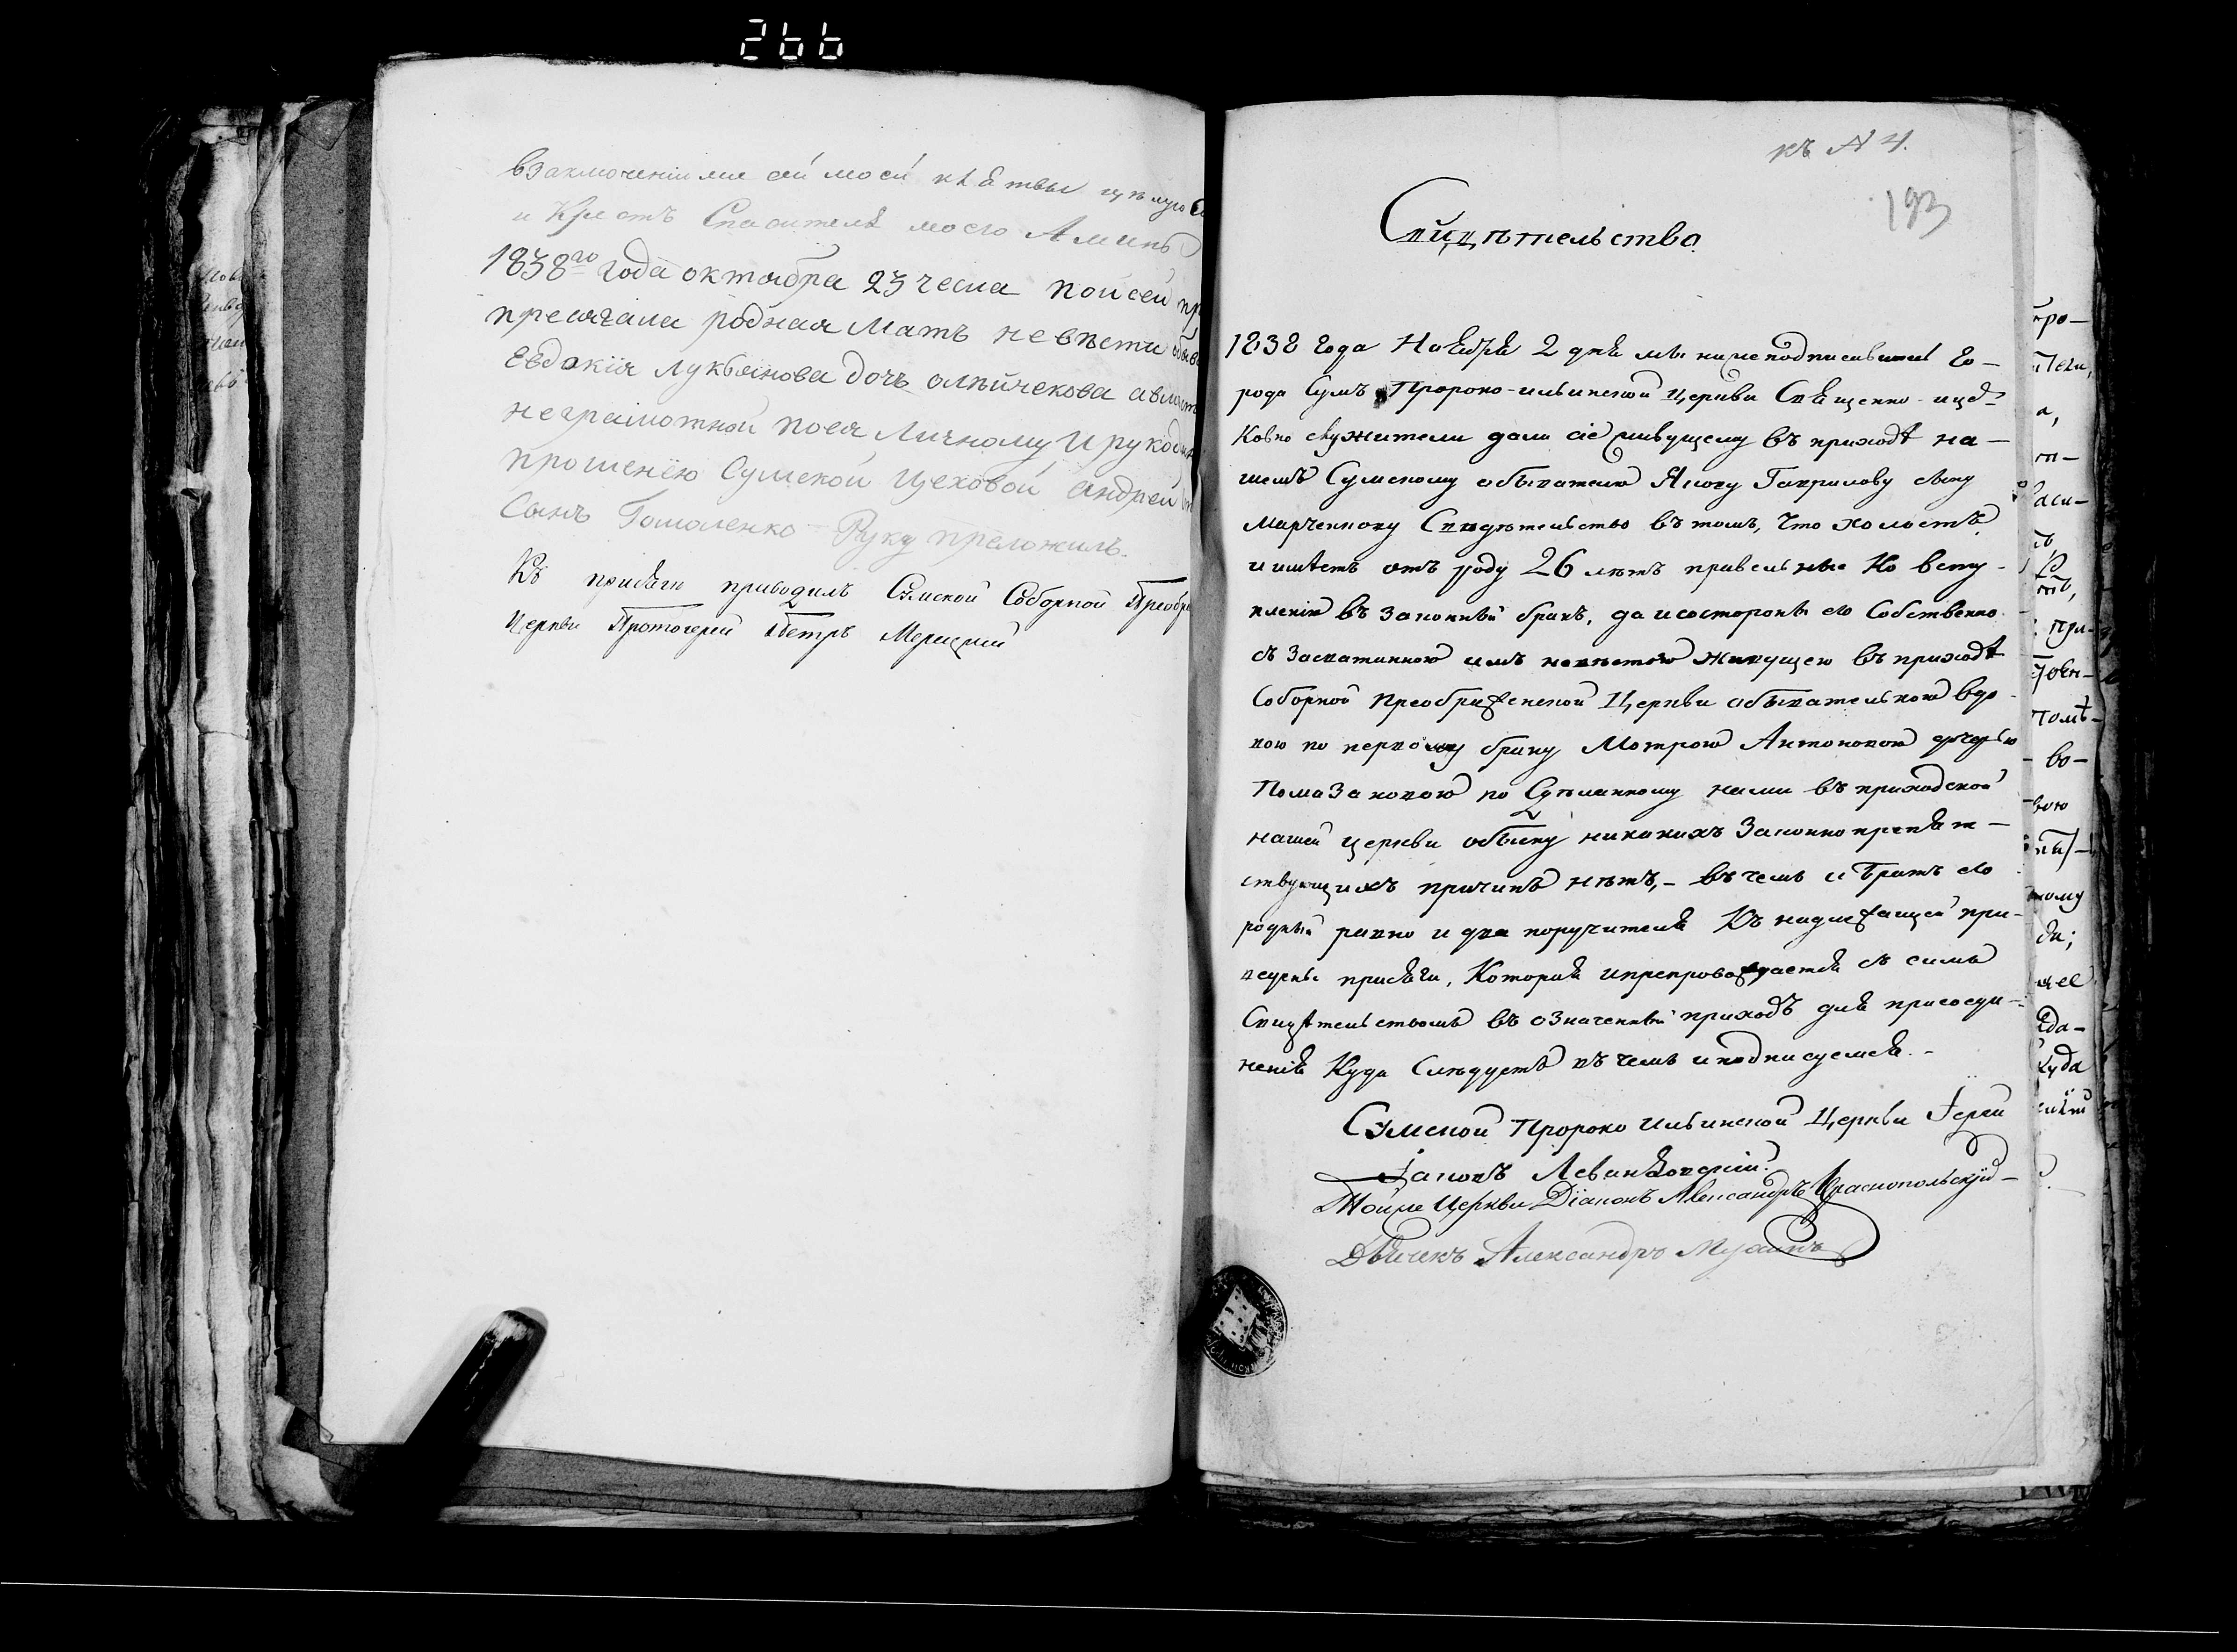 266
въ заключеніи же сей моей клятвы цѣлую
и Крестъ Спасителя моего Аминь
1838го года октября 23 числа по сей
присягала родная Мать невѣсти
Евдокія Лукьянова дочь
неграмотной поея Личному И
прошенію Сумской Цеховой андрей
Сынъ Гомоленко Руку преложилъ.
Къ присягѣ приводилъ Сумской Соборной
Церкви Протоіерей Петръ
къ № 4.
193
Свидѣтельство.
1838 года Ноября 2 дня мы нижеподписавшіеся го-
рода Сумъ Пророко-ильинской Церкви Священно- и це-
ковно служители дали сіе живущему въ приходѣ на-
шемъ Сумскому обывателю Якову Гаврилову сыну
Марченкову Свидѣтельство въ томъ, что холостъ
и имѣетъ отъ роду 26 лѣтъ ко всту-
пленію въ законный бракъ, да и состороны его Собственно
съ Засватанною имъ невѣстою живущею въ приходѣ
Соборной Преображенской Церкви обывательскою вдо-
вою по первому браку Мотрою Антоновою дочерью
Помазановою по Сдѣланному нами въ приходской
нашей церкви обыску никакихъ Законно препят-
ствующихъ причинъ нѣтъ,- въ чемъ и Братъ его
родный равно и два поручителя Къ надлежащей при-
ведены присяги, Которая и препровождается съ симъ
Свидѣтельствомъ въ означенный приходъ для присоеди-
ненія Куда Слѣдуетъ въ чемъ и подписуемся.-
Сумской Пророко Ильинской Церкви Іерей
Іаковъ
Тойже Церкви Діаконъ Александръ Краснопольскій
Дьячекъ Александръ Мухинъ